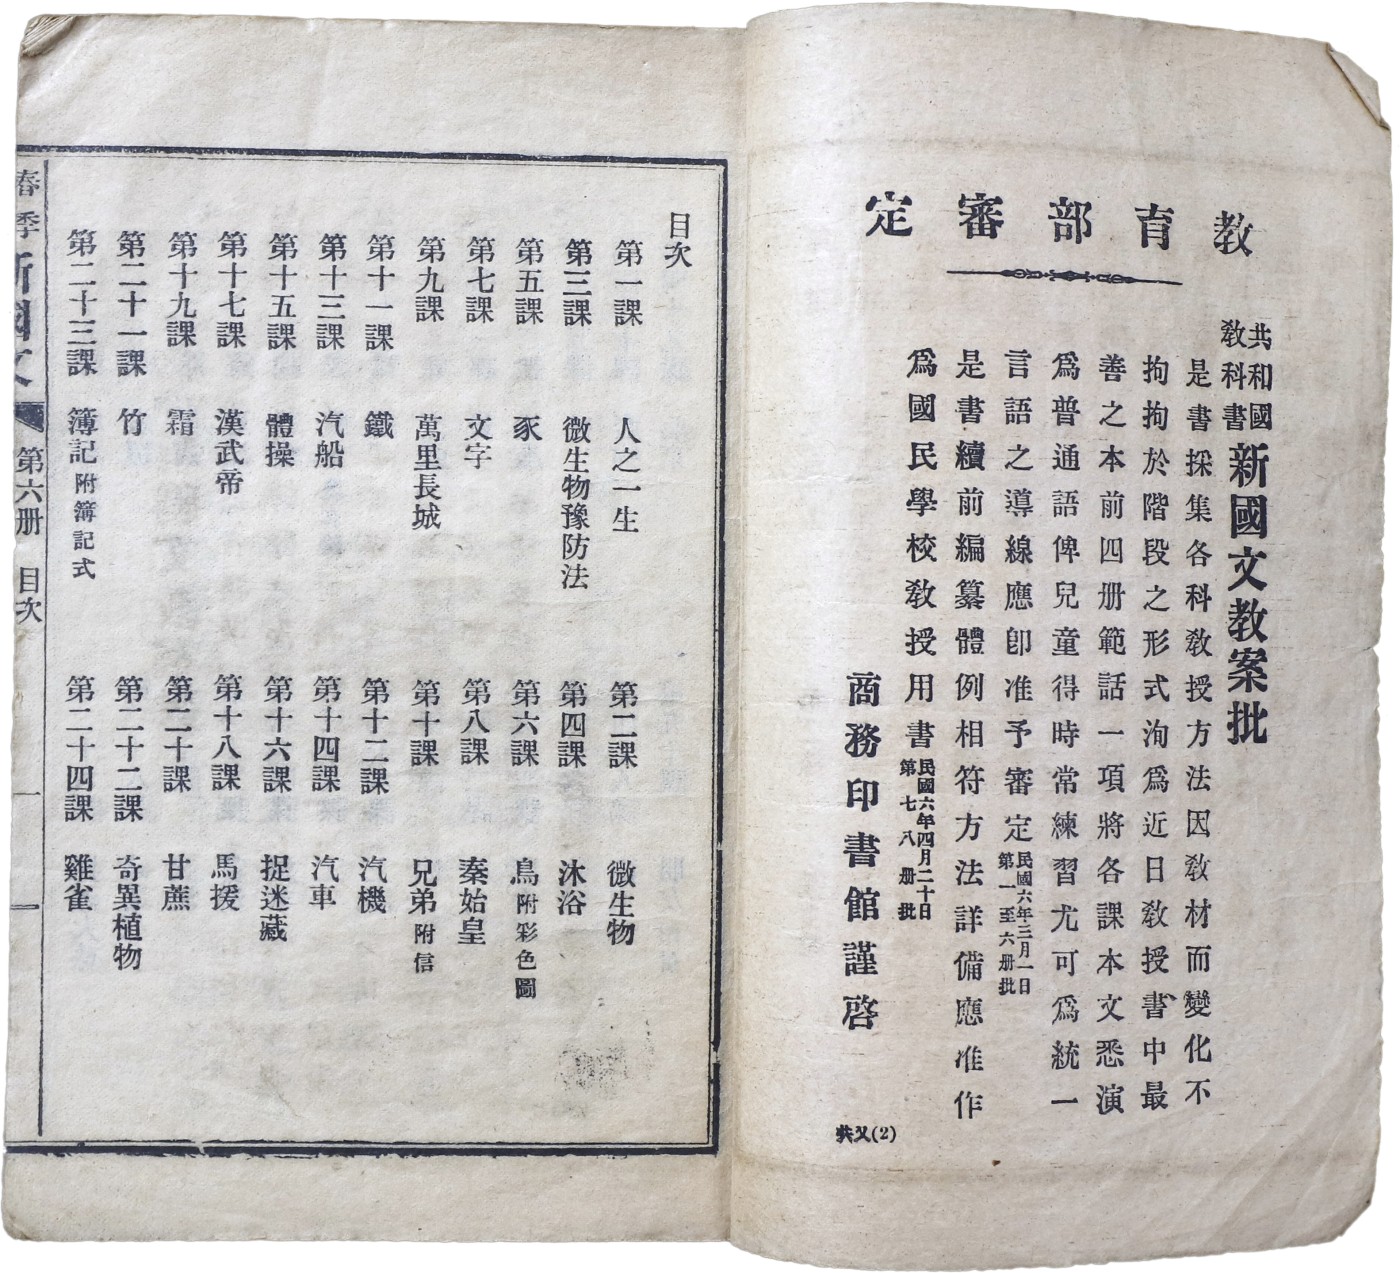 教育部審定
共和國教科書 新國文教案批
是書採集各科教授方法因教材而變化不
拘拘於階段之形式洵爲近日教授書中最
善之本前四册範話一項將各課本文悉演
爲普通語俾兒童得時常練習尤可爲統一
言語之導線應卽准予審定民國六年三月一日第一至六册批
是書續前編纂體例相符方法詳備應准作
爲國民學校教授用書民國六年四月二十日第七八册批
商務印書館謹啓
共又(2)
目次
第一課 人之一生 第二課 微生物
第三課 微生物豫防法 第四課 沐浴
第五課 豕 第六課 鳥附彩色圖
第七課 文字 第八課 秦始皇
第九課 萬里長城 第十課 兄弟附信
第十一課 鐵 第十二課 汽機
第十三課 汽船 第十四課 汽車
第十五課 體操 第十六課 捉迷藏
第十七課 漢武帝 第十八課 馬援
第十九課 霜 第二十課 甘蔗
第二十一課 竹 第二十二課 奇異植物
第二十三課 簿記附簿記式 第二十四課 雞雀
春季新國文 第六册 目次 一